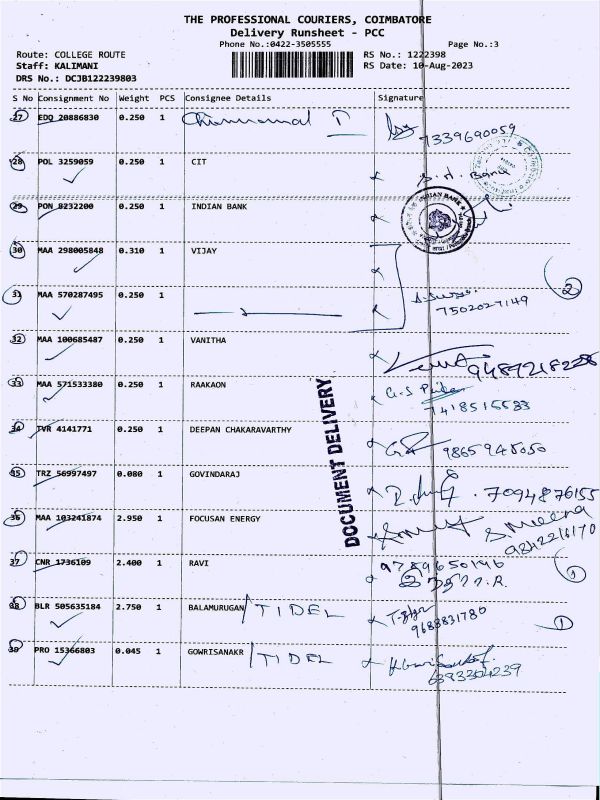 THE PROFESSIONAL COURIERS, COIMBATORE
Delivery Runsheet - PCC
Phone No.:0422-3505555 Page No.:3
Route: COLLEGE ROUTE RS No.: 1222398
Staff: KALIMANI RS Date: 10-Aug-2023
DRS No.: DCJB122239803
S No Consignment No Weight PCS Consignee Details Signature
27 EDQ 20886830 0.250 1
7339690059
28 POL 3259059 0.250 1 CIT
29 PON 8232200 0.250 1 INDIAN BANK
INDIAN BANK
30 MAA 298005848 0.310 1 VIJAY
2
31 MAA 570287495 0.250 1
7502027149
32 MAA 100685487 0.250 1 VANITHA
33 MAA 571533380 0.250 1 RAAKAON
7418515533
34 TVR 4141771 0.250 1 DEEPAN CHAKARAVARTHY
9865945050
35 TRZ 56997497 0.080 1 GOVINDARAJ
7094876155
36 MAA 103241874 2.950 1 FOCUSAN ENERGY
S. Meena
9842216170
37 CNR 1736109 2.400 1 RAVI
9789650146
1
38 BLR 505635184 2.750 1 BALAMURUGAN / TIDEL
9688831780
1
39 PRO 15366803 0.045 1 GOWRISANAKR / TIDEL
6393304239
DOCUMENT DELIVERY